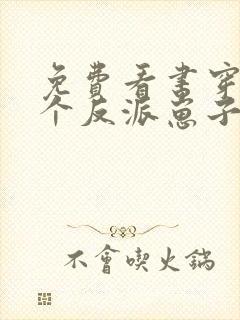 免費看書穿
个反派崽子
不會喫火鍋